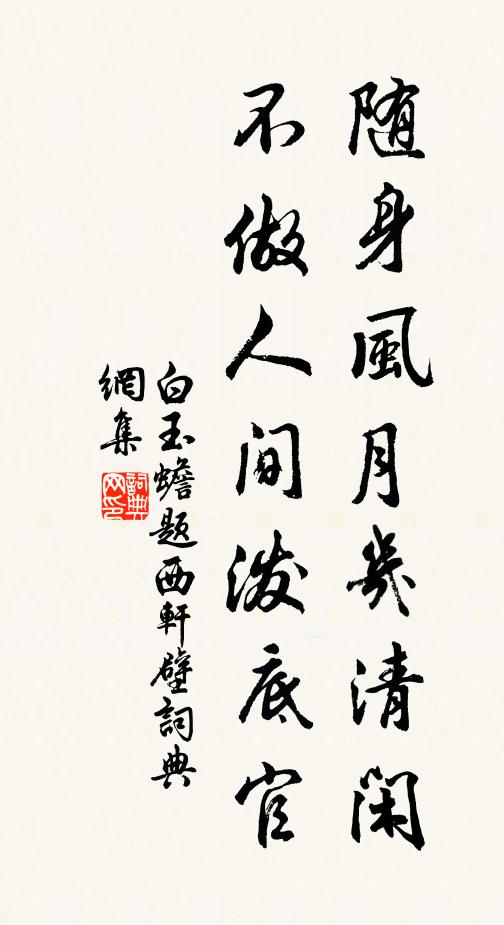 随身風月幾清閑
不做人间潑底官
白玉蟾题西軒壁詞典
網集
詞典
网印